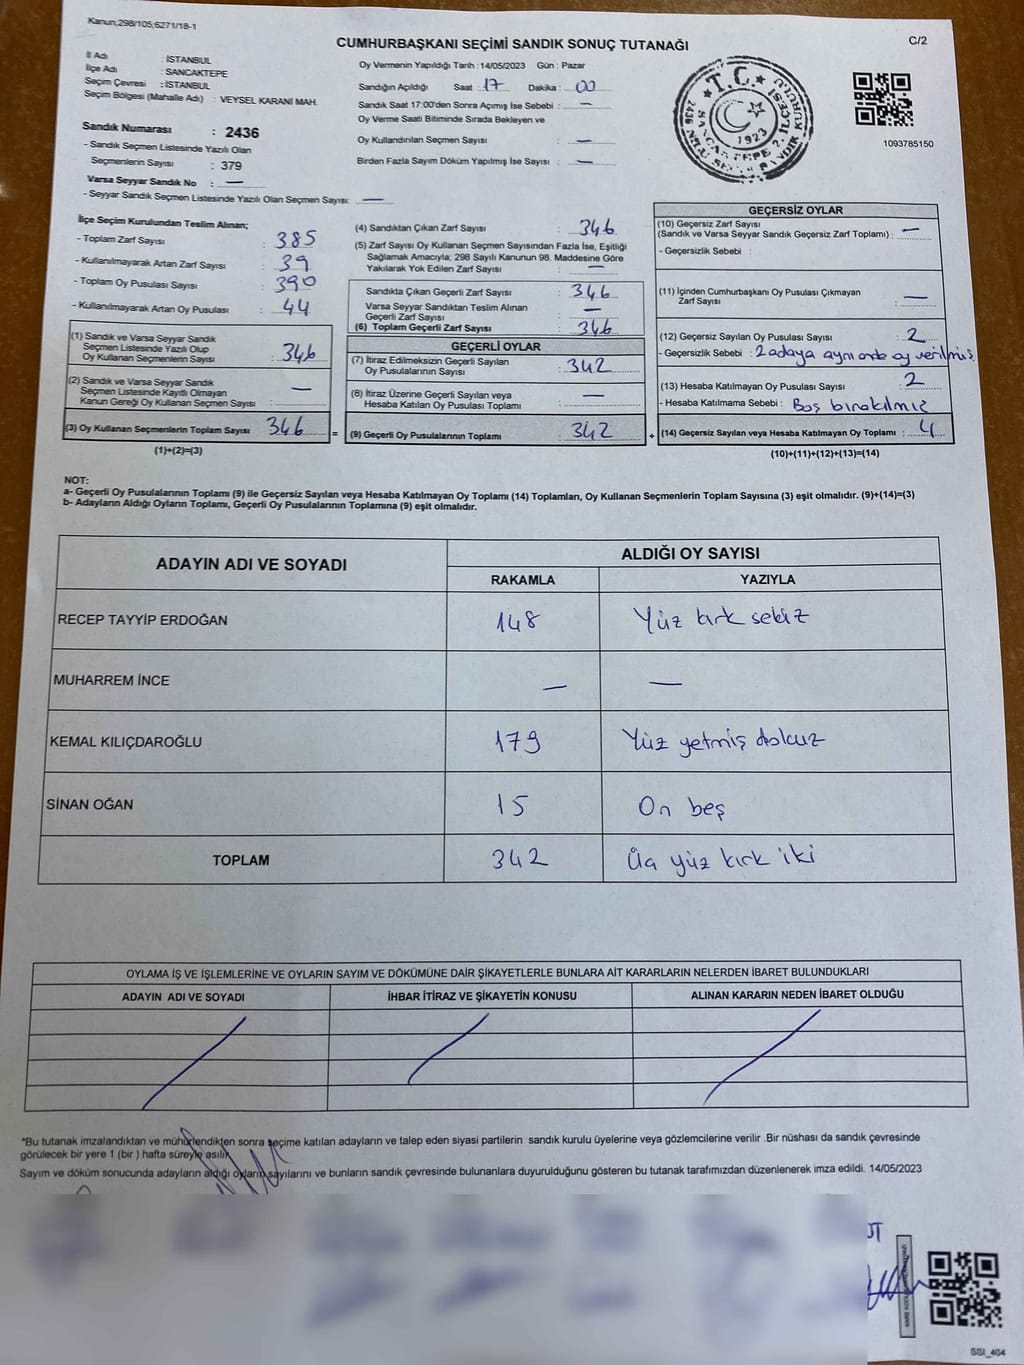 Kanun;298/105;6271/18-1
CUMHURBAŞKANI SEÇİMİ SANDIK SONUÇ TUTANAĞI
C/2
İl Adı : İSTANBUL
İlçe Adı : SANCAKTEPE
Seçim Çevresi : İSTANBUL
Seçim Bölgesi (Mahalle Adı) : VEYSEL KARANİ MAH.
Sandık Numarası : 2436
- Sandık Seçmen Listesinde Yazılı Olan
Seçmenlerin Sayısı : 379
Varsa Seyyar Sandık No : —
- Seyyar Sandık Seçmen Listesinde Yazılı Olan Seçmen Sayısı: —
Oy Vermenin Yapıldığı Tarih : 14/05/2023 Gün : Pazar
Sandığın Açıldığı Saat : 17 Dakika : 00
Sandık Saat 17:00'den Sonra Açımış İse Sebebi : —
Oy Verme Saati Bitiminde Sırada Bekleyen ve
Oy Kullandırılan Seçmen Sayısı : —
Birden Fazla Sayım Döküm Yapılmış İse Sayısı : —
T.C.
1923
1093785150
İlçe Seçim Kurulundan Teslim Alınan;
- Toplam Zarf Sayısı : 385
- Kullanılmayarak Artan Zarf Sayısı : 39
- Toplam Oy Pusulası Sayısı : 390
- Kullanılmayarak Artan Oy Pusulası : 44
(1) Sandık ve Varsa Seyyar Sandık
Seçmen Listesinde Yazılı Olup
Oy Kullanan Seçmenlerin Sayısı : 346
(2) Sandık ve Varsa Seyyar Sandık
Seçmen Listesinde Kayıtlı Olmayan
Kanun Gereği Oy Kullanan Seçmen Sayısı : —
(3) Oy Kullanan Seçmenlerin Toplam Sayısı 346
(1)+(2)=(3)
(4) Sandıktan Çıkan Zarf Sayısı : 346
(5) Zarf Sayısı Oy Kullanan Seçmen Sayısından Fazla İse, Eşitliği
Sağlamak Amacıyla; 298 Sayılı Kanunun 98. Maddesine Göre
Yakılarak Yok Edilen Zarf Sayısı : —
Sandıkta Çıkan Geçerli Zarf Sayısı : 346
Varsa Seyyar Sandıktan Teslim Alınan
Geçerli Zarf Sayısı : —
(6) Toplam Geçerli Zarf Sayısı : 346
GEÇERLİ OYLAR
(7) İtiraz Edilmeksizin Geçerli Sayılan
Oy Pusulalarının Sayısı : 342
(8) İtiraz Üzerine Geçerli Sayılan veya
Hesaba Katılan Oy Pusulası Toplamı : —
= (9) Geçerli Oy Pusulalarının Toplamı : 342
GEÇERSİZ OYLAR
(10) Geçersiz Zarf Sayısı
(Sandık ve Varsa Seyyar Sandık Geçersiz Zarf Toplamı) : —
- Geçersizlik Sebebi :
(11) İçinden Cumhurbaşkanı Oy Pusulası Çıkmayan
Zarf Sayısı : —
(12) Geçersiz Sayılan Oy Pusulası Sayısı : 2
- Geçersizlik Sebebi : 2 adaya aynı anda oy verilmiş
(13) Hesaba Katılmayan Oy Pusulası Sayısı : 2
- Hesaba Katılmama Sebebi : Boş bırakılmış
+ (14) Geçersiz Sayılan veya Hesaba Katılmayan Oy Toplamı : 4
(10)+(11)+(12)+(13)=(14)
NOT:
a- Geçerli Oy Pusulalarının Toplamı (9) ile Geçersiz Sayılan veya Hesaba Katılmayan Oy Toplamı (14) Toplamları, Oy Kullanan Seçmenlerin Toplam Sayısına (3) eşit olmalıdır. (9)+(14)=(3)
b- Adayların Aldığı Oyların Toplamı, Geçerli Oy Pusulalarının Toplamına (9) eşit olmalıdır.
ADAYIN ADI VE SOYADI ALDIĞI OY SAYISI
RAKAMLA YAZIYLA
RECEP TAYYİP ERDOĞAN 148 Yüz kırk sekiz
MUHARREM İNCE — —
KEMAL KILIÇDAROĞLU 179 Yüz yetmiş dokuz
SİNAN OĞAN 15 On beş
TOPLAM 342 Üç yüz kırk iki
OYLAMA İŞ VE İŞLEMLERİNE VE OYLARIN SAYIM VE DÖKÜMÜNE DAİR ŞİKAYETLERLE BUNLARA AİT KARARLARIN NELERDEN İBARET BULUNDUKLARI
ADAYIN ADI VE SOYADI İHBAR İTİRAZ VE ŞİKAYETİN KONUSU ALINAN KARARIN NEDEN İBARET OLDUĞU
*Bu tutanak imzalandıktan ve mühürlendikten sonra seçime katılan adayların ve talep eden siyasi partilerin sandık kurulu üyelerine veya gözlemcilerine verilir .Bir nüshası da sandık çevresinde
görülecek bir yere 1 (bir ) hafta süreyle asılır.
Sayım ve döküm sonucunda adayların aldığı oyların sayılarını ve bunların sandık çevresinde bulunanlara duyurulduğunu gösteren bu tutanak tarafımızdan düzenlenerek imza edildi. 14/05/2023
SSI_404